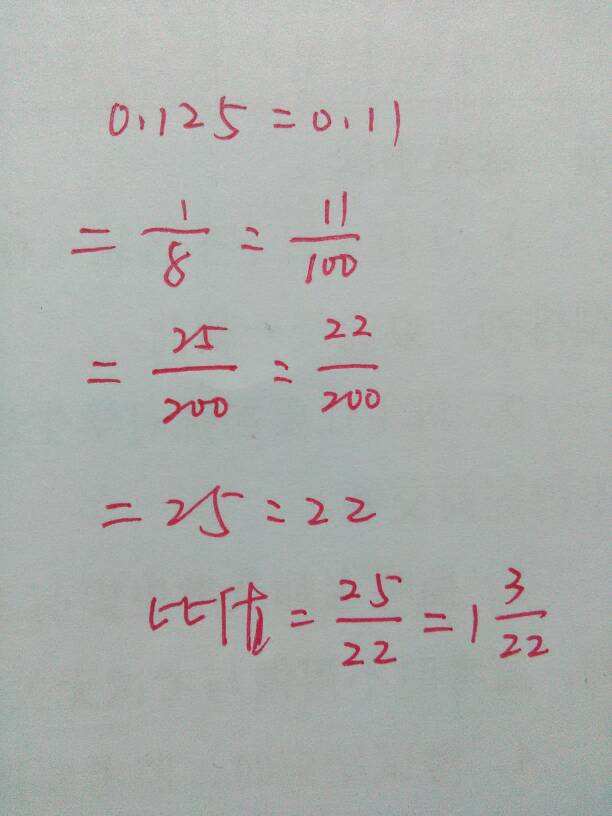 0.125=0.11
=1/8=11/100
=25/200=22/200
=25=22
比值=25/22=1 3/22